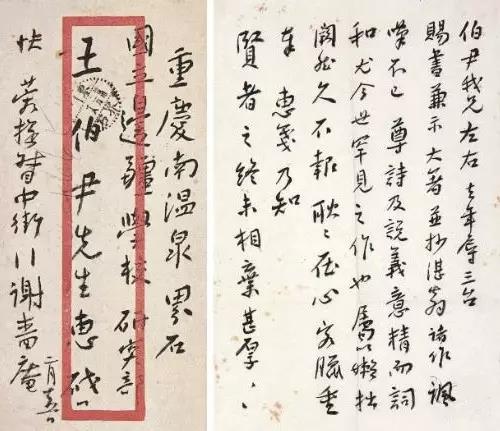 重慶南溫泉界石
國立邊疆學校研究部
王伯尹先生惠啟
快 蓉提督中街八謝嗇庵
二月
伯尹我兄左右 去年辱三台
賜書兼示大著並抄湛翁諸作諷
嘆不已 尊詩及說義意精而詞
和尤今世罕見之作也屬以嬾拙
闕然久不報耿〻在心客臘重
奉 惠箋乃知
賢者之終未相棄甚厚〻